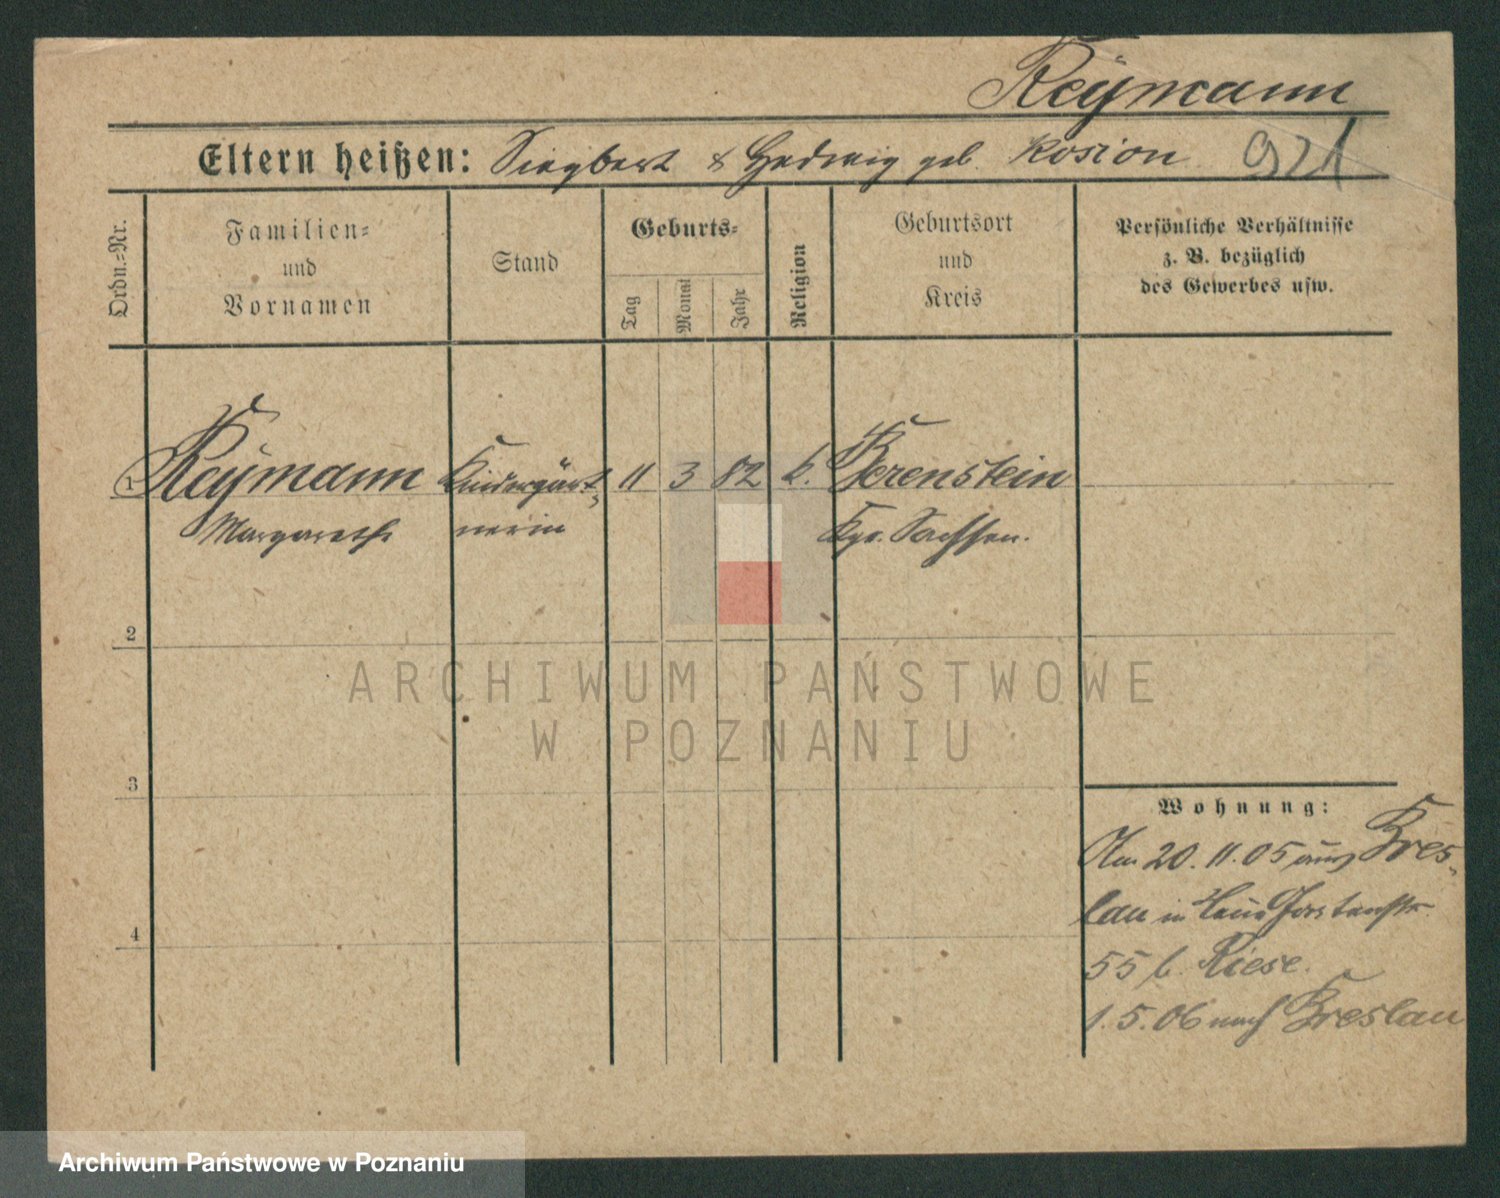 Reymann
Eltern heißen: Siegbert & Hedwig geb. Kosion 921
Ordn.-Nr.
Familien-
und
Vornamen
Stand
Geburts-
Tag
Monat
Jahr
Religion
Geburtsort
und
Kreis
Persönliche Verhältnisse
z. B. bezüglich
des Gewerbes usw.
1 Reymann Kindergärt- 11 3 82 k. Berenstein
Margarethe nerin Kgr. Sachsen.
2
3
4
Wohnung:
Am 20.11.05 aus Bres-
lau in
55 b. Riese.
1.5.06 nach Breslau
ARCHIWUM PAŃSTWOWE
W POZNANIU
Archiwum Państwowe w Poznaniu